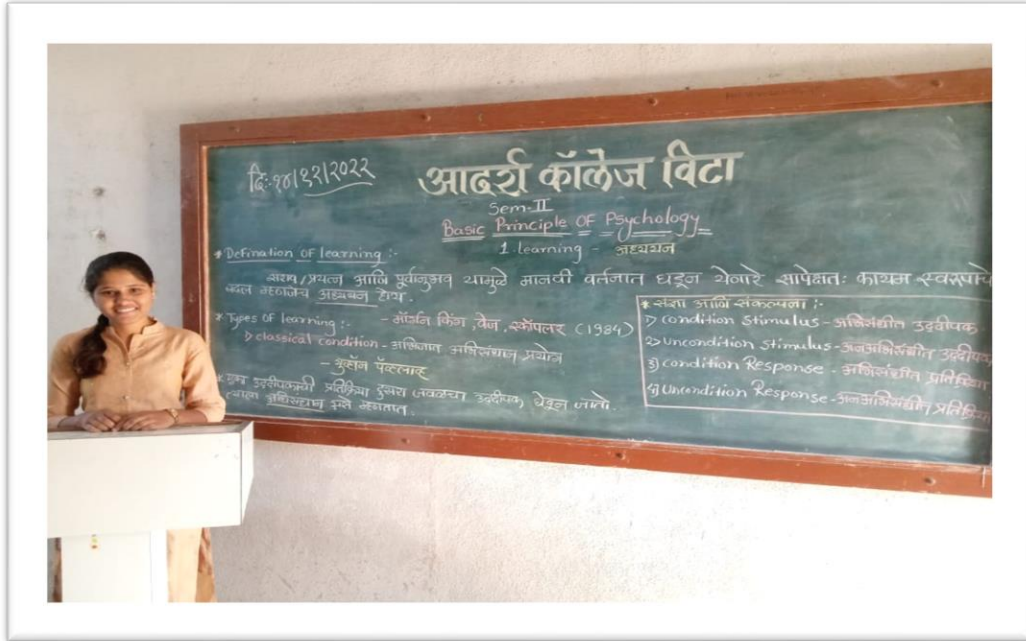 दि:-१४/१२/२०२२
आदर्श कॉलेज विटा
Sem-II
Basic Principle OF Psychology
1. learning - अध्ययन
* Defination OF learning :-
सराव/प्रयत्न आणि पूर्वानुभव यामुळे मानवी वर्तनात घडून येणारे सापेक्षतः कायम स्वरूपाचे
बदल म्हणजेच अध्ययन होय.
- मॉर्गन किंग, वेज, स्कॉपलर (1984)
* Types OF learning :-
1) classical condition - अभिजात अभिसंधान प्रयोग
- पॅव्लाव्ह
* उद्दीपकाची प्रतिक्रिया दुसरा जवळचा उद्दीपक घेऊन जातो.
त्याला अभिसंधान असे म्हणतात.
* संज्ञा आणि संकल्पना :-
1) Condition Stimulus - अभिसंधीत उद्दीपक
2) Uncondition Stimulus - अनअभिसंधीत उद्दीपक
3) Condition Response - अभिसंधीत प्रतिक्रिया
4) Uncondition Response - अनअभिसंधीत प्रतिक्रिया